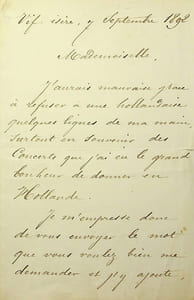 Vif, isère, 7 Septembre 1892
Mademoiselle,
J'aurais mauvaise grace
à refuser à une hollandaise
quelques lignes de ma main,
surtout en souvenir des
Concerts que j'ai eu le grand
bonheur de donner en
Hollande.
Je m'empresse donc
de vous envoyer le mot
que vous voulez bien me
demander et j'y ajoute,